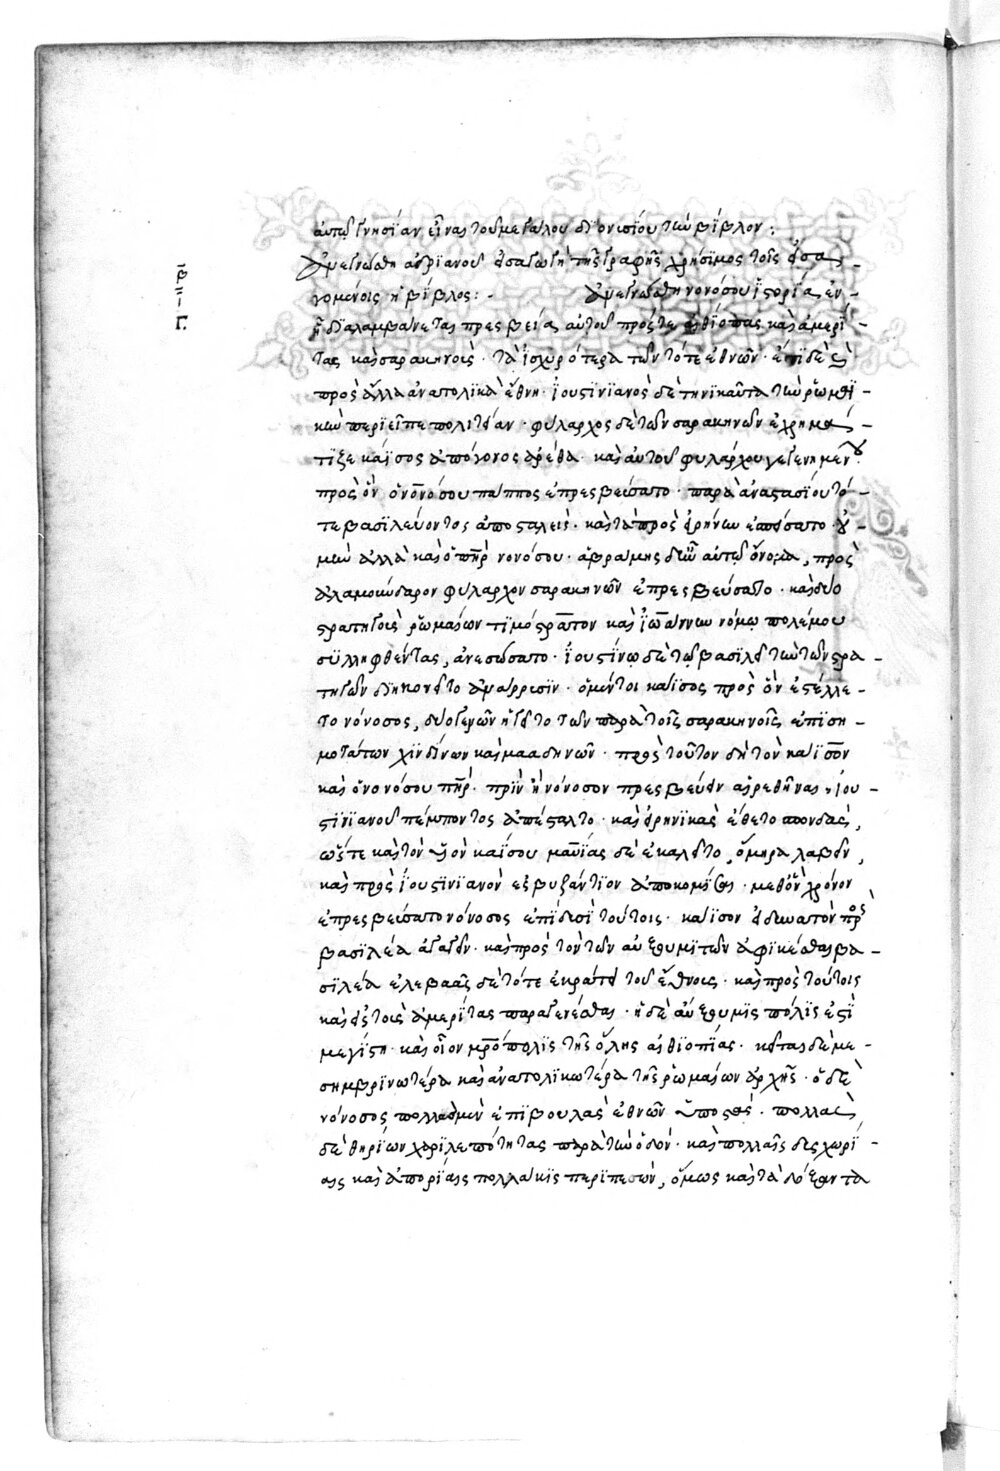 αὐτῶ γνησίαν εἶναι τοῦ μεγάλου διονυσίου τὴν βίβλον:
Ἀνεγνώσθη ἀδριανοῦ εἰσαγωγὴ τῆς γραφῆς χρήσιμος τοῖς εἰσα-
γομένοις ἡ βίβλος: - Ἀνεγνώσθη νονόσου ἱστορία ἐν
ᾗ διαλαμβάνεται πρεσβεία αὐτοῦ πρός τε αἰθίοπας καὶ ἀμερί-
τας καὶ σαρακηνοὺς· τὰ ἰσχυρότερα τῶν τότε ἐθνῶν· ἔτι δὲ καὶ
πρὸς ἄλλα ἀνατολικὰ ἔθνη· ἰουστινιανὸς δὲ τηνικαῦτα τὴν ῥωμαϊ-
κὴν περιεῖπε πολιτείαν· φύλαρχος δὲ τῶν σαρακηνῶν ἐχρημά-
τιζε κάϊσος ἀπόγονος ἀρέθα· καὶ αὐτοῦ φυλάρχου γεγενημένου·
πρὸς ὃν ὁ νονόσου πάππος ἐπρεσβεύσατο· παρὰ ἀναστασίου τό-
τε βασιλεύοντος ἀποσταλεὶς· καὶ τὰ πρὸς εἰρήνην ἐσπείσατο· οὐ
μὴν ἀλλὰ καὶ ὁ πὴρ νονόσου· ἀβράμης δ' ἦν αὐτῶ ὄνομα, πρὸς
ἀλαμούνδαρον φύλαρχον σαρακηνῶν ἐπρεσβεύσατο· καὶ δύο
στρατηγοὺς ῥωμαίων τιμόστρατον καὶ ἰωάννην νόμω πολέμου
συλληφθέντας, ἀνεσώσατο· ἰουστίνω δὲ τῶ βασιλεῖ τὴν τῶν στρα-
τηγῶν διηκονεῖτο ἀνάρρησιν· ὁ μέντοι κάϊσος πρὸς ὃν ἐστέλλε-
το νόνοσος, δύο γενῶν ἡγεῖτο τῶν παρὰ τοῖς σαρακηνοῖς ἐπιση-
μοτάτων χινδίνων καὶ μααδηνῶν· πρὸς τοῦτον δὴ τὸν κάϊσον
καὶ ὁ νονόσου πὴρ· πρὶν ἢ νόνοσον πρεσβεύειν αἱρεθῆναι, ἰου-
στινιανοῦ πέμποντος ἀπέσταλτο· καὶ εἰρηνικὰς ἔθετο σπονδὰς,
ὥστε καὶ τὸν υἱὸν καΐσου μαυΐας δὲ ἐκαλεῖτο, ὅμηρα λαβεῖν,
καὶ πρὸς ἰουστινιανὸν ἐς βυζάντιον ἀποκομίσαι· μεθ' ὃν χρόνον
ἐπρεσβεύσατο νόνοσος ἐπὶ δυσὶ τούτοις· κάϊσον εἰ δυνατὸν πρὸς
βασιλέα ἀγαγεῖν· καὶ πρὸς τὸν τῶν αὐξουμιτῶν ἀφικέσθαι βα-
σιλέα ἐλεσβαᾶς δὲ τότε ἐκράτει τοῦ ἔθνους· καὶ πρὸς τούτοις
καὶ εἰς τοὺς ἀμερίτας παραγενέσθαι· ἡ δὲ αὔξουμις πόλις ἐστὶ
μεγίστη· καὶ οἷον μρόπολις τῆς ὅλης αἰθιοπίας· κεῖται δὲ με-
σημβρινωτέρα καὶ ἀνατολικωτέρα τῆς ῥωμαίων ἀρχῆς· ὁ δὲ
νόνοσος πολλὰς μὲν ἐπιβουλὰς ἐθνῶν ὑποστὰς· πολλὰς
δὲ θηρίων χαλεπότητας παρὰ τὴν ὁδόν· καὶ πολλαῖς δυσχωρί-
αις καὶ ἀπορίαις πολλάκις περιπεσὼν, ὅμως καὶ τὰ δόξαντα